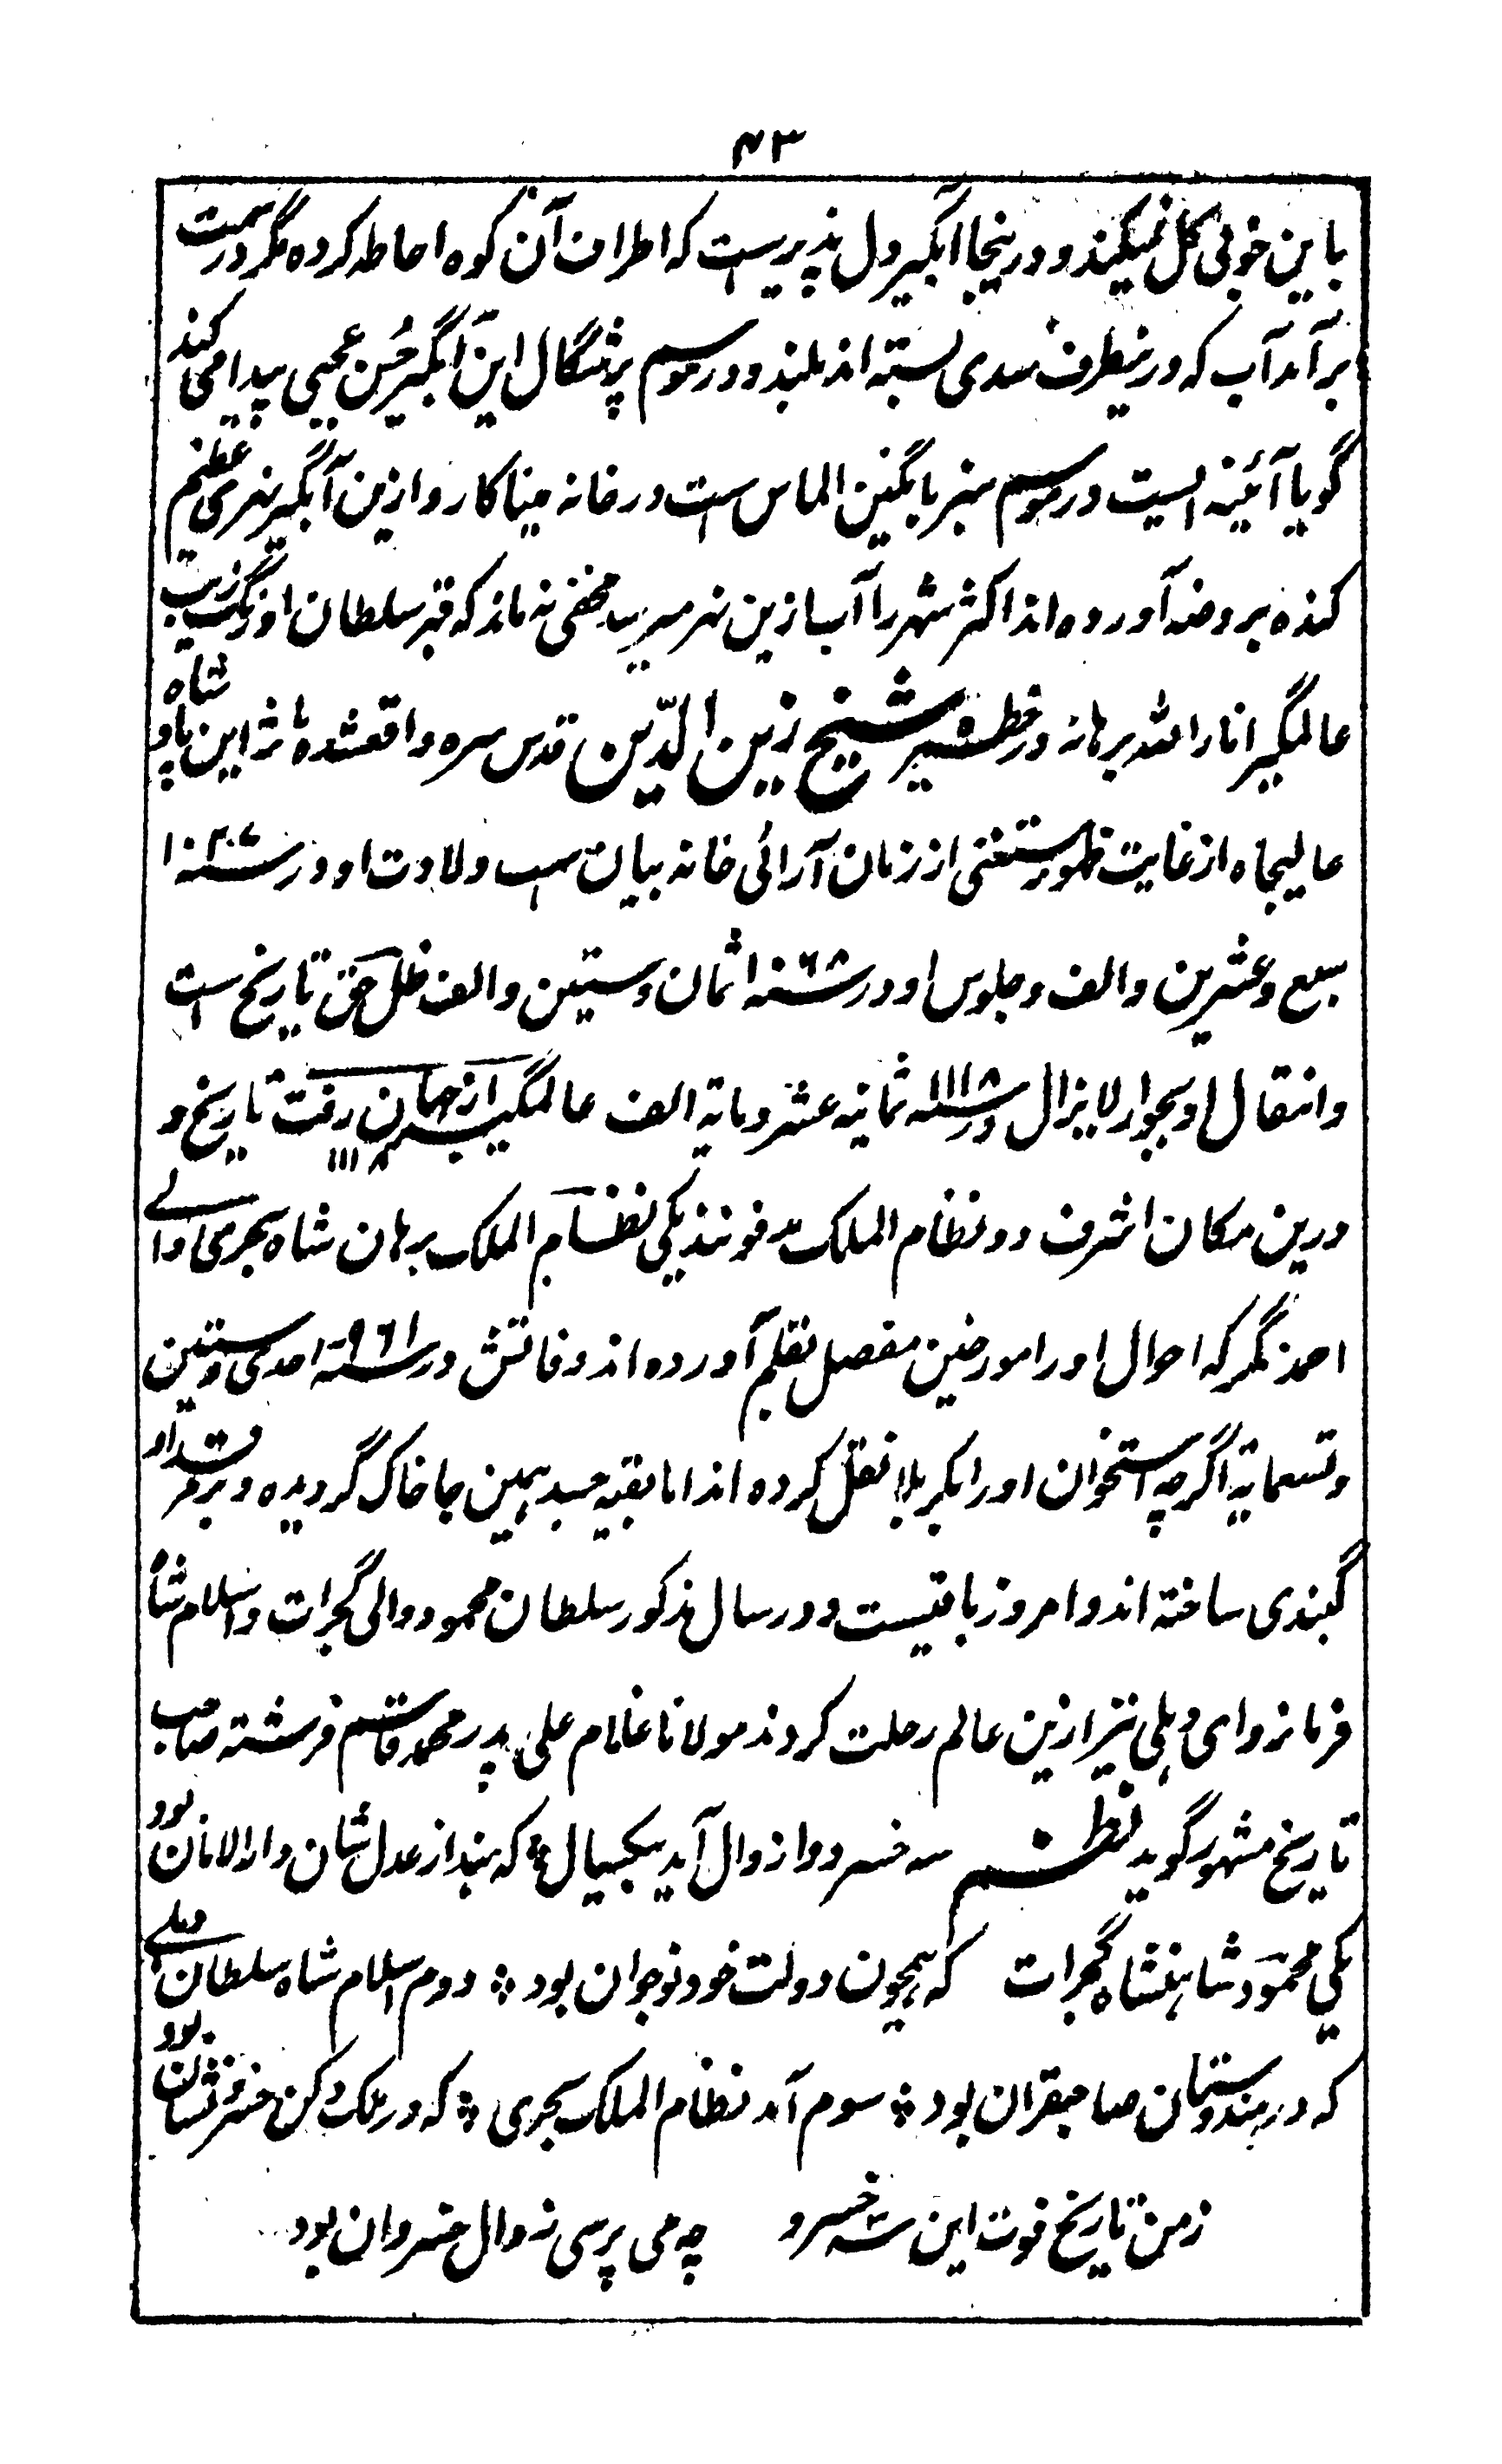 ۴۳
باین خوبی گل نمیکند و درینجا آبگیر دل پذیریست که اطراف آن کوه احاطه کرده مگر در سمت
برآمد آب که درینطرف سدی بسته اند بلند و در موسم پرشگال این آبگیر حُسن عجیبی پیدا می کند
گویا آئینه ایست در موسم سبز یا نگین الماس است در خانه مینا کار و ازین آبگیر نهری عظیم
کنده بروضه آورده اند اکثر شهر را آب ازین نهر میرسد مخفی نه ماند که قبر سلطان اورنگ زیب
عالمگیر انار الله برهانه در خطیره شیخ زین الدّین قدس سره واقعشده مآثر این پادشاه
عالیجاه از غایت ظهور مستغنی از زمان آرائی خانه بیان ست ولادت او در سنه ۱۰۲۷
سبع و عشرین والف و جلوس او در سنه ۱۰۶۸ ثمان و ستین والف ظل حق تاریخ است
و انتقال او بجوار لایزال در سنه ۱۱۱۸ ثمانیه عشر و مایة الف عالمگیر از جهان رفت تاریخ و
۱۱۱۸
درین مکان اشرف دو نظام الملک مدفونند یکی نظام الملک برهان شاه بحری والے
احمد نگر که احوال او را مورخین مفصل بقلم آورده اند وفاتش در سنه ۹۶۱ احدی و ستین
و تسعمایة اگرچه استخوان او را بکربلا نقل کرده اند اما بقیه جسد همین جا خاک گردیده و بر مرقد او
گنبدی ساخته اند و امروز باقیست و در سال مذکور سلطان محمود والی گجرات و اسلام شاه
فرمانروای دهلی نیز ازین عالم رحلت کردند مولانا غلام علی پدر محمد قاسم فرشته صاحب
تاریخ مشهور گوید نظم سه خسرو را زوال آمد بیکسال ؛ که هند از عدل شان دار الامان بود
یکی محمود شاهنشاه گجرات که همچون دولت خود نوجوان بود ؛ دوم اسلام شاه سلطان دهلے
که در هندوستان صاحبقران بود ؛ سوم آمد نظام الملک بحری ؛ که در ملک دکن خسرو نشان بود
زمن تاریخ فوت این سه خسرو چه می پرسی زوال خسروان بود